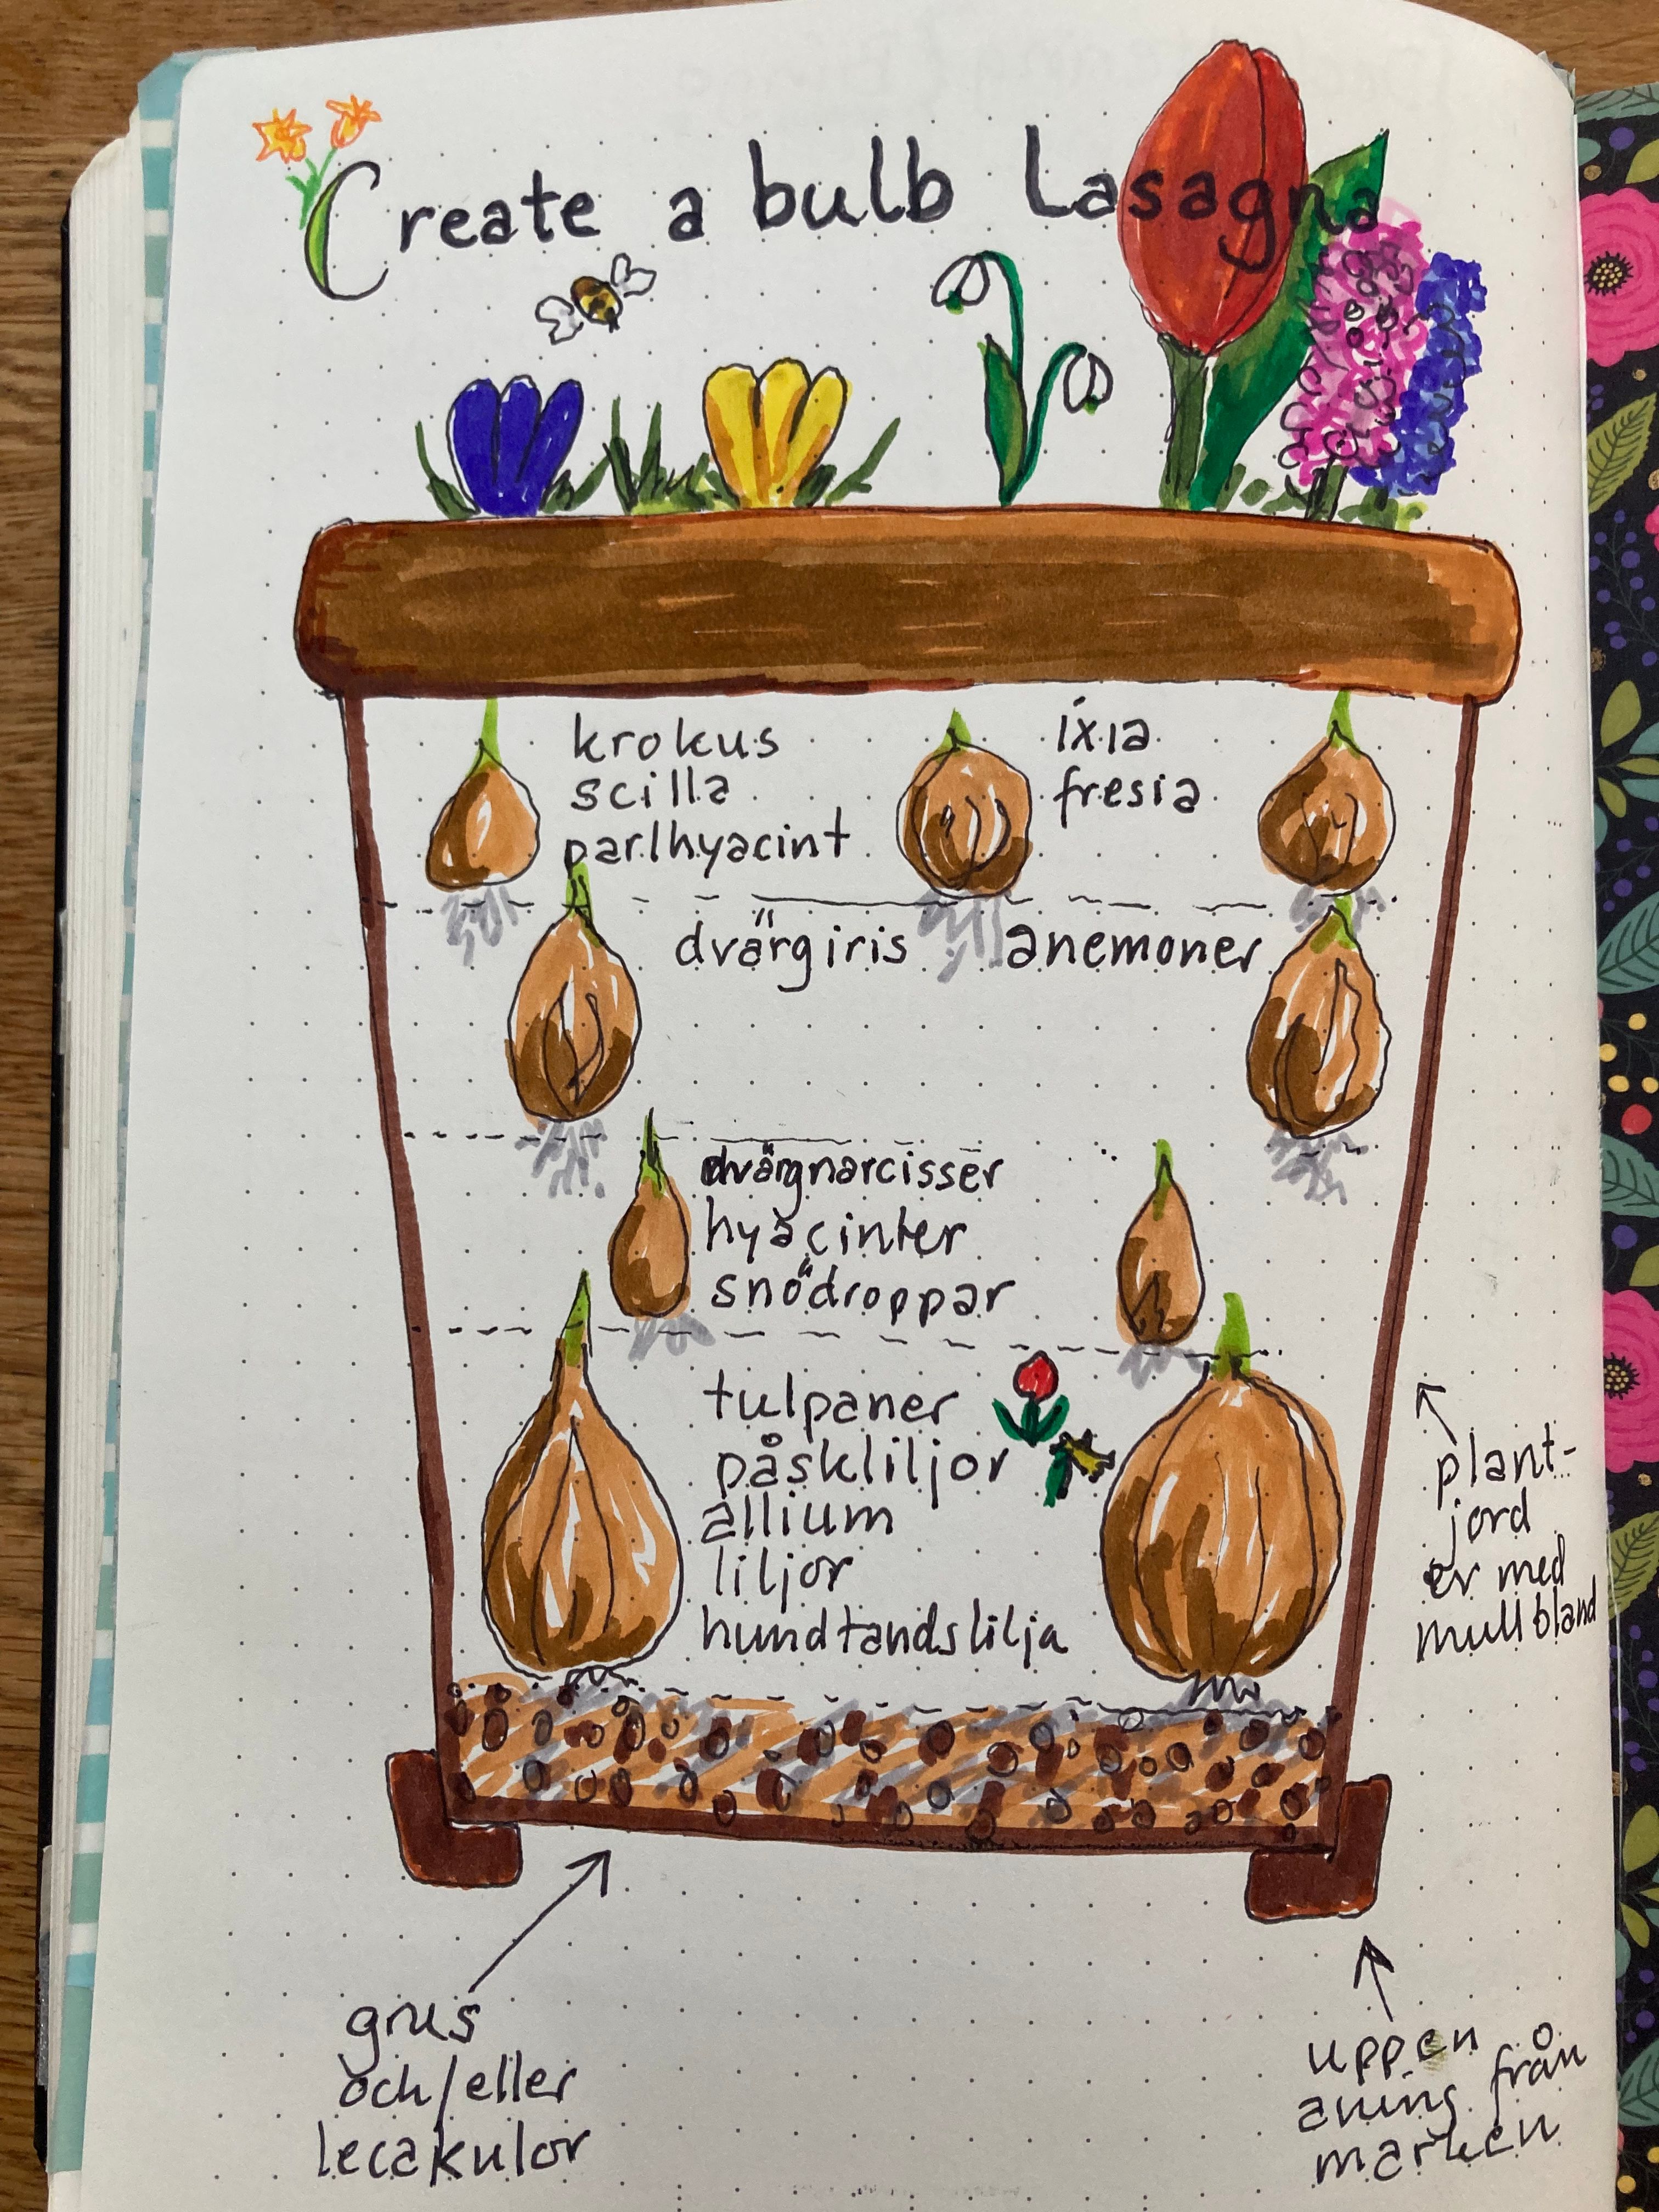 Create a bulb Lasagna
krokus
scilla
parlhyacint
ixia
fresia
dvärgiris
anemoner
dvärgnarcisser
hyacinter
snödroppar
tulpaner
påskliljor
allium
liljor
hundtandslilja
plant-
jord
er med
mullbland
grus
och/eller
lecakulor
uppen
aning från
marken